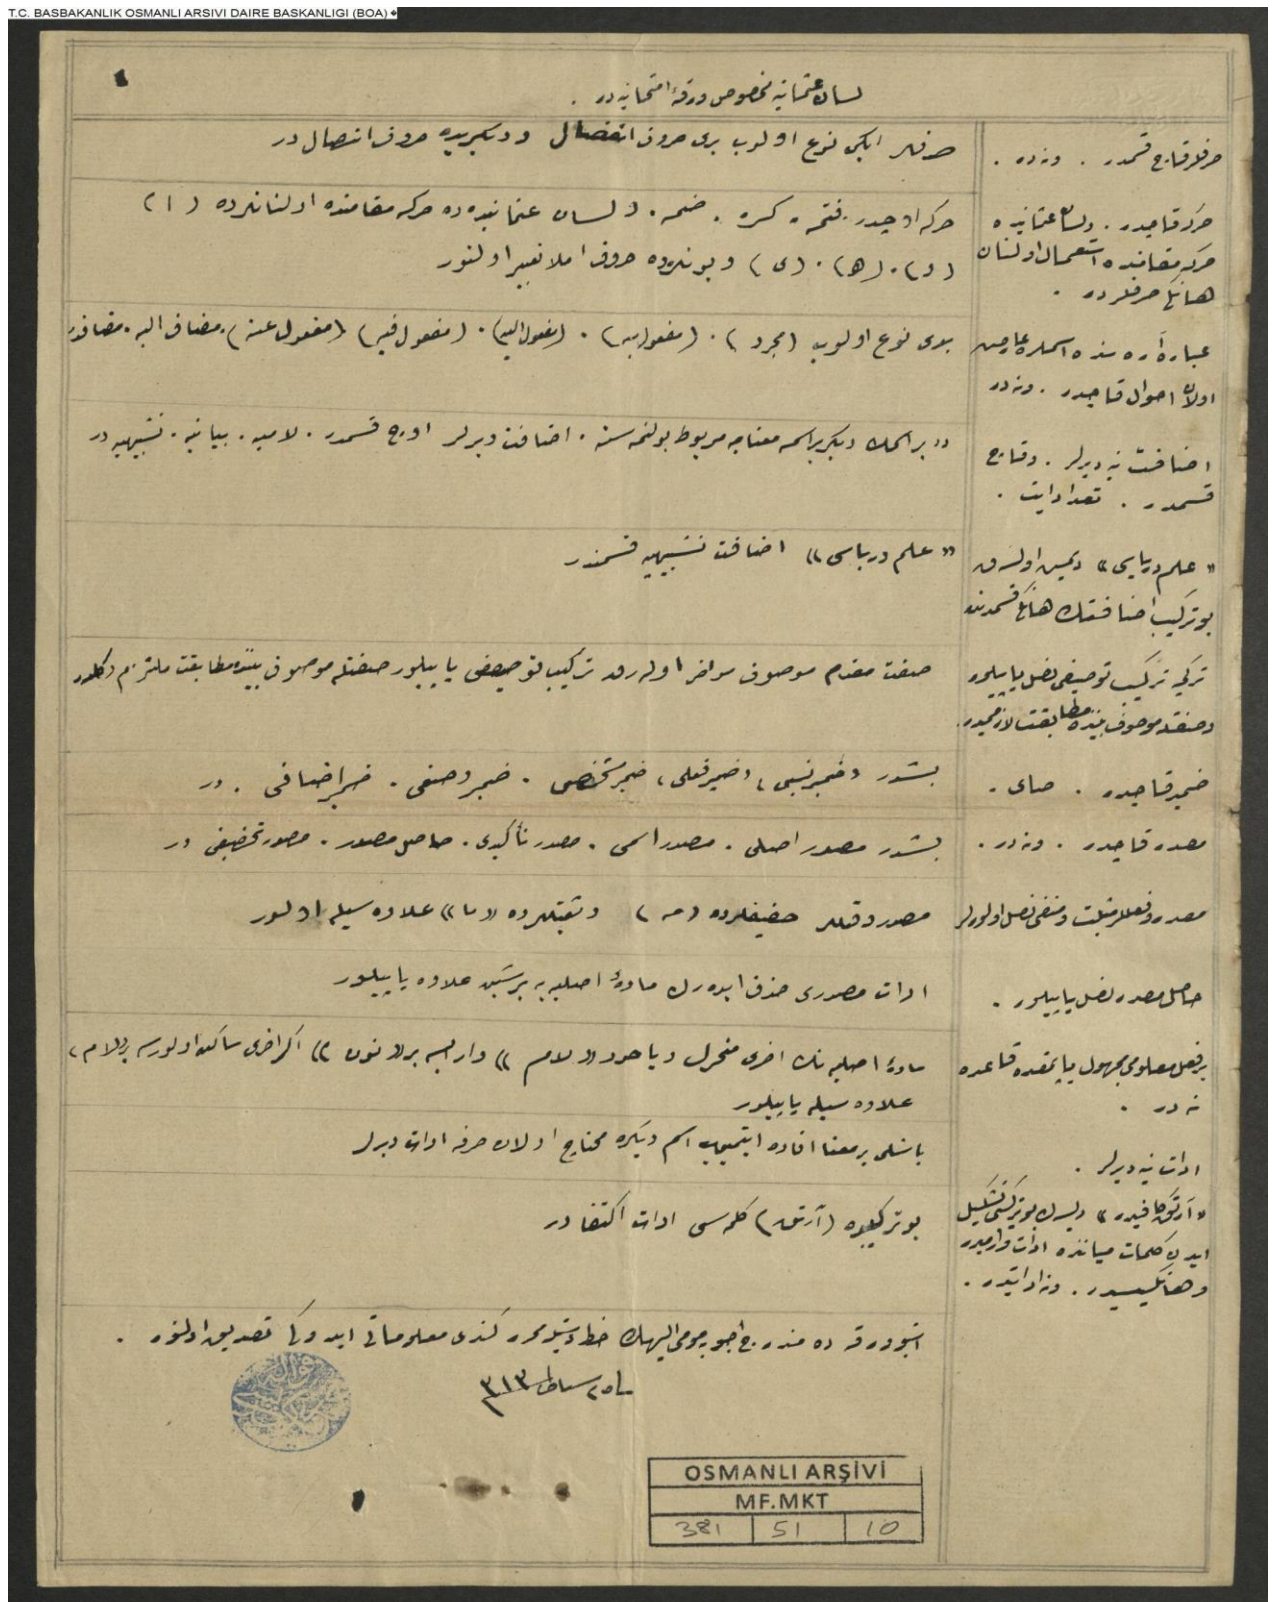 T.C. BASBAKANLIK OSMANLI ARSIVI DAIRE BASKANLIGI (BOA)
لسان عثمانیه مخصوص ورقهٔ امتحانیه در .
حرفلر قاچ قسمدر . و نه در .
حرفلر ایکی نوع اولوب بری حروف انفصال و دیگریده حروف اتصال در
حرکه قاچدر . و لسان عثمانیده
حرکه مقامنده استعمال اولنان
هانکی حرفلردر .
حرکه اوچدر . فتحه . کسره . ضمه . و لسان عثمانیده ده حرکه مقامنده اولنانلرده ( ا )
( و ) . ( ه ) . ( ی ) و بونلرده حروف املا تعبیر اولنور
عباره آره سنده اسملره عارض
اولان احوال قاچدر . و نه در
یدی نوع اولوب ( مجرد ) . ( مفعول به ) . ( مفعول الیه ) . ( مفعول فیه ) ( مفعول عنه ) . مضاف الیه . مضافدر
اضافت نه دیرلر . و قاچ
قسمدر . تعداد ایت .
بر اسمك دیگر بر اسمه معناجه مربوط بولنمه سنه . اضافت دیرلر اوچ قسمدر . لامیه . بیانیه . تشبیهیه در
« علم دریاسی » دیمش اولسه ق
بو ترکیب اضافتك هانکی قسمدند
« علم دریاسی » اضافت تشبیهیه قسمندر
ترکجه ترکیب توصیفی نصل یاپیلور
و صفتله موصوف بیننده مطابقت لازمیدر .
صفت مقدم موصوف مؤخر اوله رق ترکیب توصیفی یاپیلور صفتله موصوف بیننده مطابقت ملتزم دکلدر
ضمیر قاچدر . صای .
بشدر ضمیر نسبی ، ضمیر فعلی ، ضمیر شخصی . ضمیر وصفی . ضمیر اضافی . در
مصدر قاچدر . و نه در .
بشدر مصدر اصلی . مصدر اسمی . مصدر تأکیدی . حاصل مصدر . مصدر تخفیفی در
مصدر و فعللر مثبت و منفی نصل اولورلر
مصدر خفیفلرده ( مه ) و ثقیللرده « ما » علاوه سیله اولور
حاصل مصدر نصل یاپیلور .
ادات مصدری حذف ایده رك مادهٔ اصلیه یه بر شین علاوه یاپیلور
بر فعل معلومی مجهول یاپمقده قاعده
نه در .
مادهٔ اصلیه نك آخری متحرك و یاخود « لام » وار ایسه بر « نون » اکر آخری ساکن اولورسه بر لام ،
علاوه سیله یاپیلور
ادات نه دیرلر .
باشلی بر معنا افاده ایتمیوب اسم دیگره محتاج اولان حرفه ادات دیرلر
« آرتق کافیدر » دیسه ك بو ترکیبی تشکیل
ایدن کلمات میاننده ادات وارمیدر
و هانکیسیدر . و نه اداتیدر .
بو ترکیبده ( آرتق ) کلمه سی ادات اکتفا در
اشبو ورقه ده مندرج اجوبه مومی الیهك خط دستیله محرر کندی معلوماتی ایدوکی تصدیق اولنور .
شباط ٣١٣
OSMANLI ARŞİVİ
MF.MKT
381 51 10